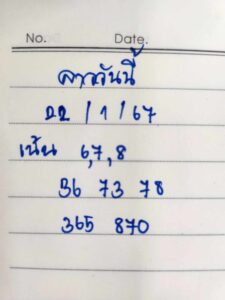 No. Date.
ลาววันนี้
22 / 1 / 67
เน้น 6,7,8
36 73 78
365 870